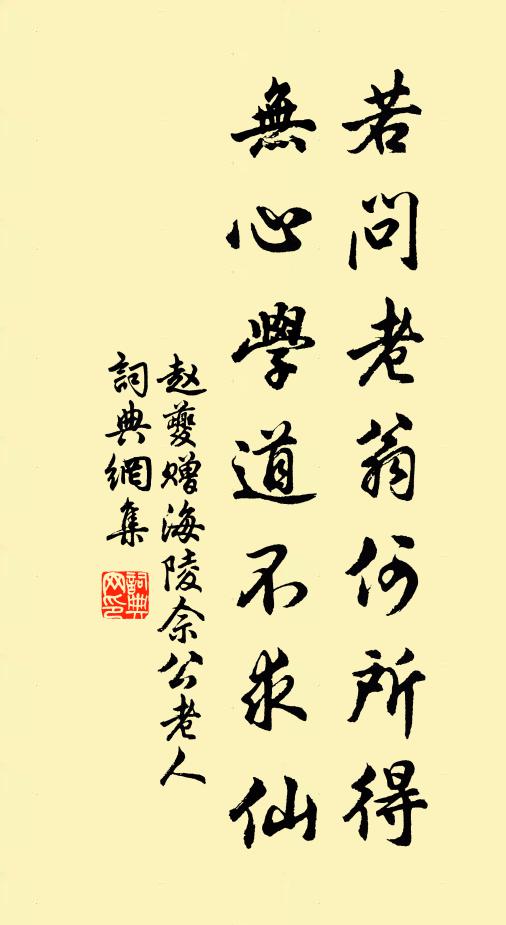 若問老翁何所得
無心學道不求仙
赵夔赠海陵佘公老人
詞典網集
詞典網印